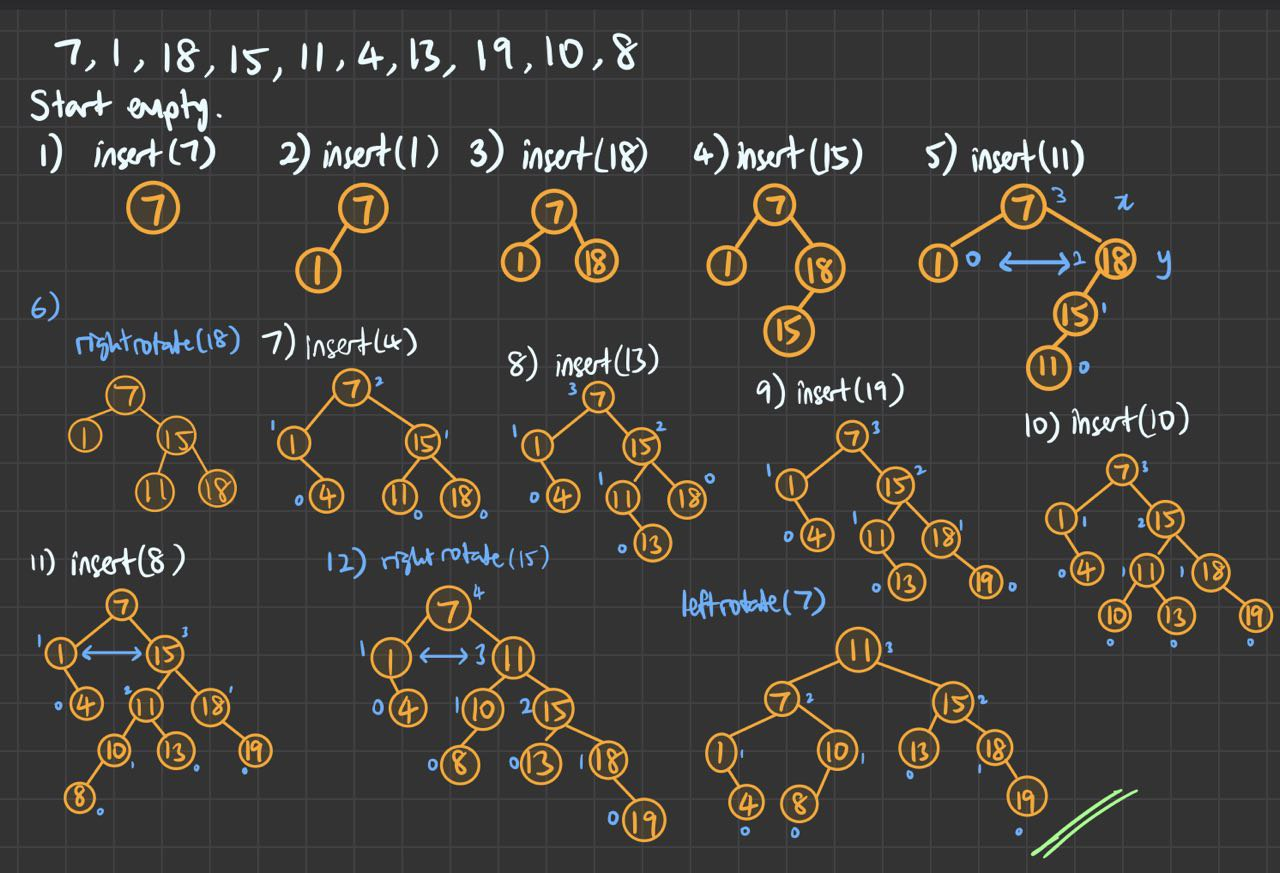 7, 1, 18, 15, 11, 4, 13, 19, 10, 8
Start empty.
1) insert(7)
7
2) insert(1)
7
1
3) insert(18)
7
1 18
4) insert(15)
7
1 18
15
5) insert(11)
7 3 x
1 0 2 18 y
15 1
11 0
6)
rightrotate(18)
7
1 15
11 18
7) insert(4)
7 2
1 1 15 1
0 4 11 0 18 0
8) insert(13)
3 7
1 1 15 2
0 4 1 11 18 0
0 13
9) insert(19)
7 3
1 1 15 2
0 4 1 11 18 1
0 13 19 0
10) insert(10)
7 3
1 1 2 15
0 4 11 1 18
10 13 19
0 0 0
11) insert(8)
7
1 1 15 3
0 4 2 11 18 1
10 1 13 0 19 0
8 0
12) rightrotate(15)
7 4
1 1 3 11
0 4 1 10 2 15
0 8 0 13 1 18
0 19
leftrotate(7)
11 3
7 2 15 2
1 1 10 1 13 0 18 1
4 0 8 0 19 0